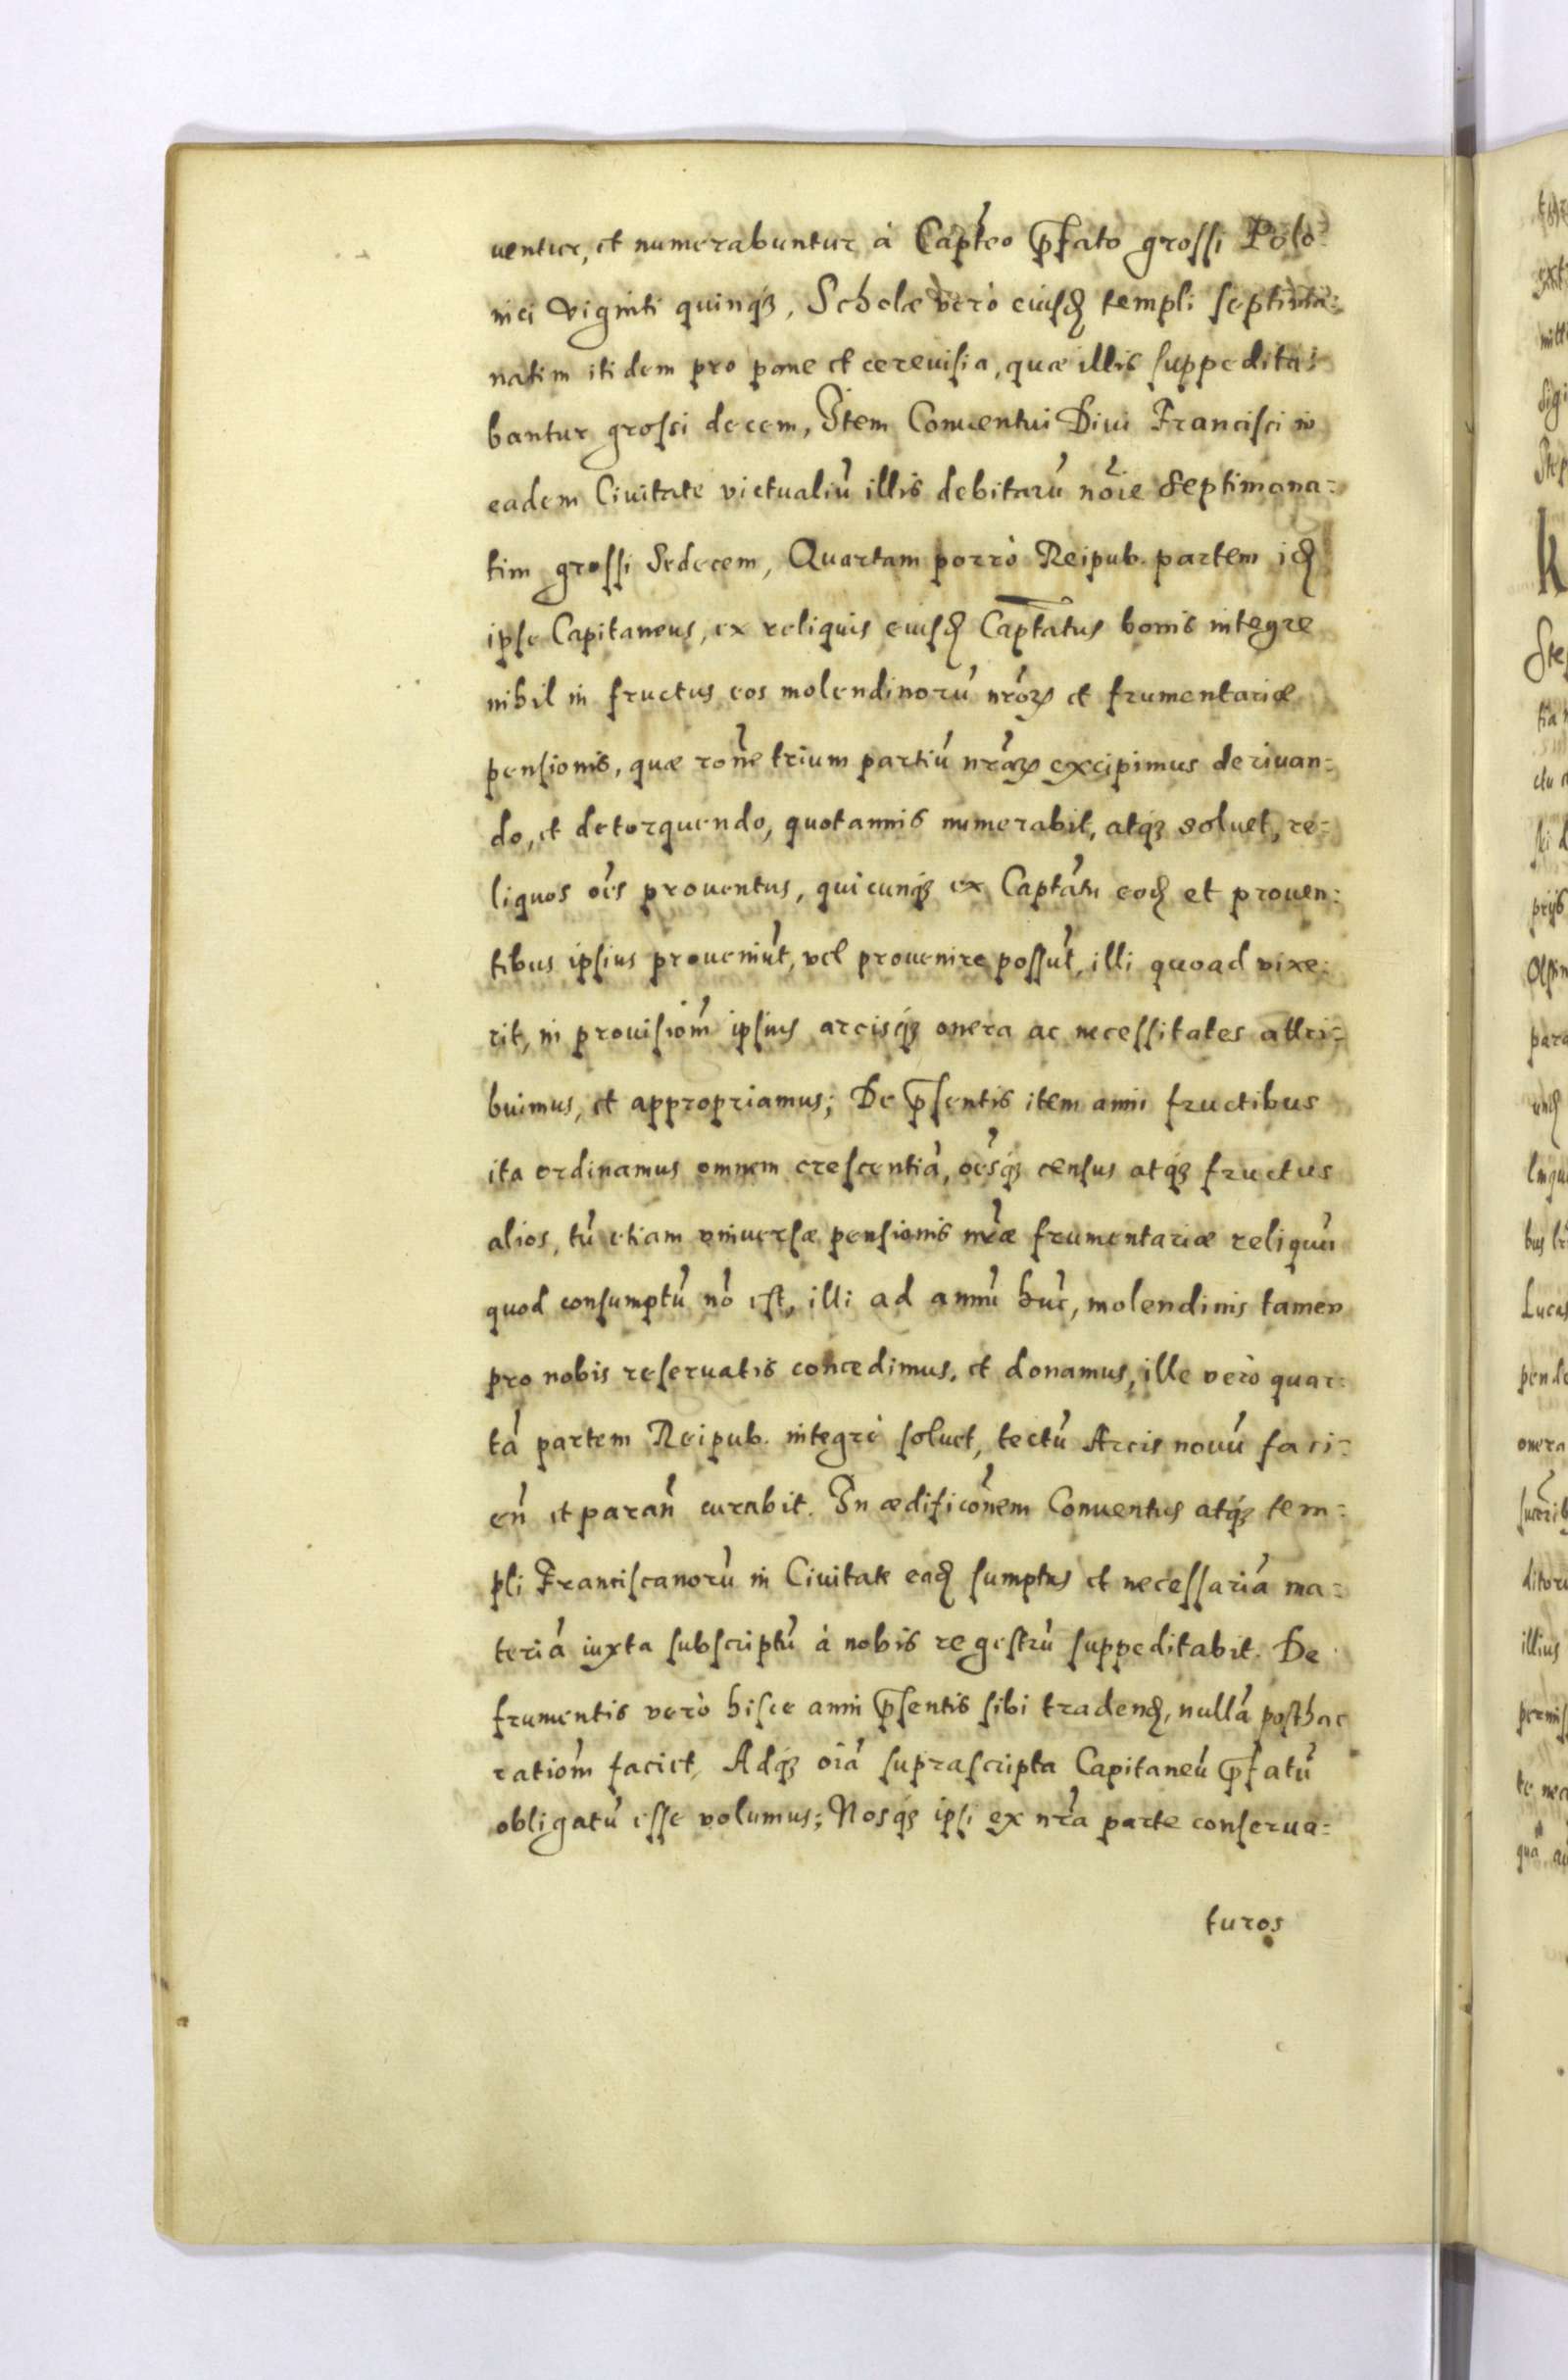 uentur, et numerabuntur à Capt̃eo p̃fato grossi Polo=
nici viginti quinq́ꝫ, Scholæ verò eiusd templi septima=
natim itidem pro pane et cereuisia, quæ illis suppedita=
bantur grossi decem, Item Conuentui Diui Francisci in
eadem Ciuitate victualiũ illis debitarũ nõie Septimana=
tim grossi Sedecem, Quartam porrò Reipub. partem id
ipse Capitaneus, ex reliquis eiusd Capt̃atus bonis integre
nihil in fructus eos molendinorũ nr̃oꝝ et frumentariæ
pensionis, quæ rõne trium partiũ nr̃aꝝ excipimus deriuan=
do, et detorquendo, quotannis numerabit, atq́ꝫ soluet, re=
liquos oẽs prouentus, quicunq́ꝫ ex Capt̃atu eod et prouen=
tibus ipsius proueniũt, vel prouenire possũt, illi quoad vixe=
rit, in prouisiom̃ ipsius arcisq́ꝫ onera ac necessitates attri=
buimus, et appropriamus; De p̃sentis item anni fructibus
ita ordinamus omnem crescentiã, oẽsq́ꝫ census atq́ꝫ fructus
alios, tũ etiam vniuersæ pensionis nr̃æ frumentariæ reliquũ
quod consumptũ nõ est, illi ad annũ hũc, molendinis tamen
pro nobis reseruatis concedimus, et donamus, ille verò quar=
tã partem Reipub. integrè soluet, tectũ Arcis nouũ faci=
eñ et parañ curabit. In ædificõnem Conuentus atq́ꝫ tem=
pli Franciscanorũ in Ciuitate ead sumptus et necessariã ma=
teriã iuxta subscriptũ à nobis regestrũ suppeditabit. De
frumentis verò hisce anni p̃sentis sibi tradend, nullã posthac
ratiom̃ faciet, Adq́ꝫ oĩa suprascripta Capitaneũ p̃fatũ
obligatũ esse volumus; Nosq́ꝫ ipsi ex nr̃a parte conserua=
turos